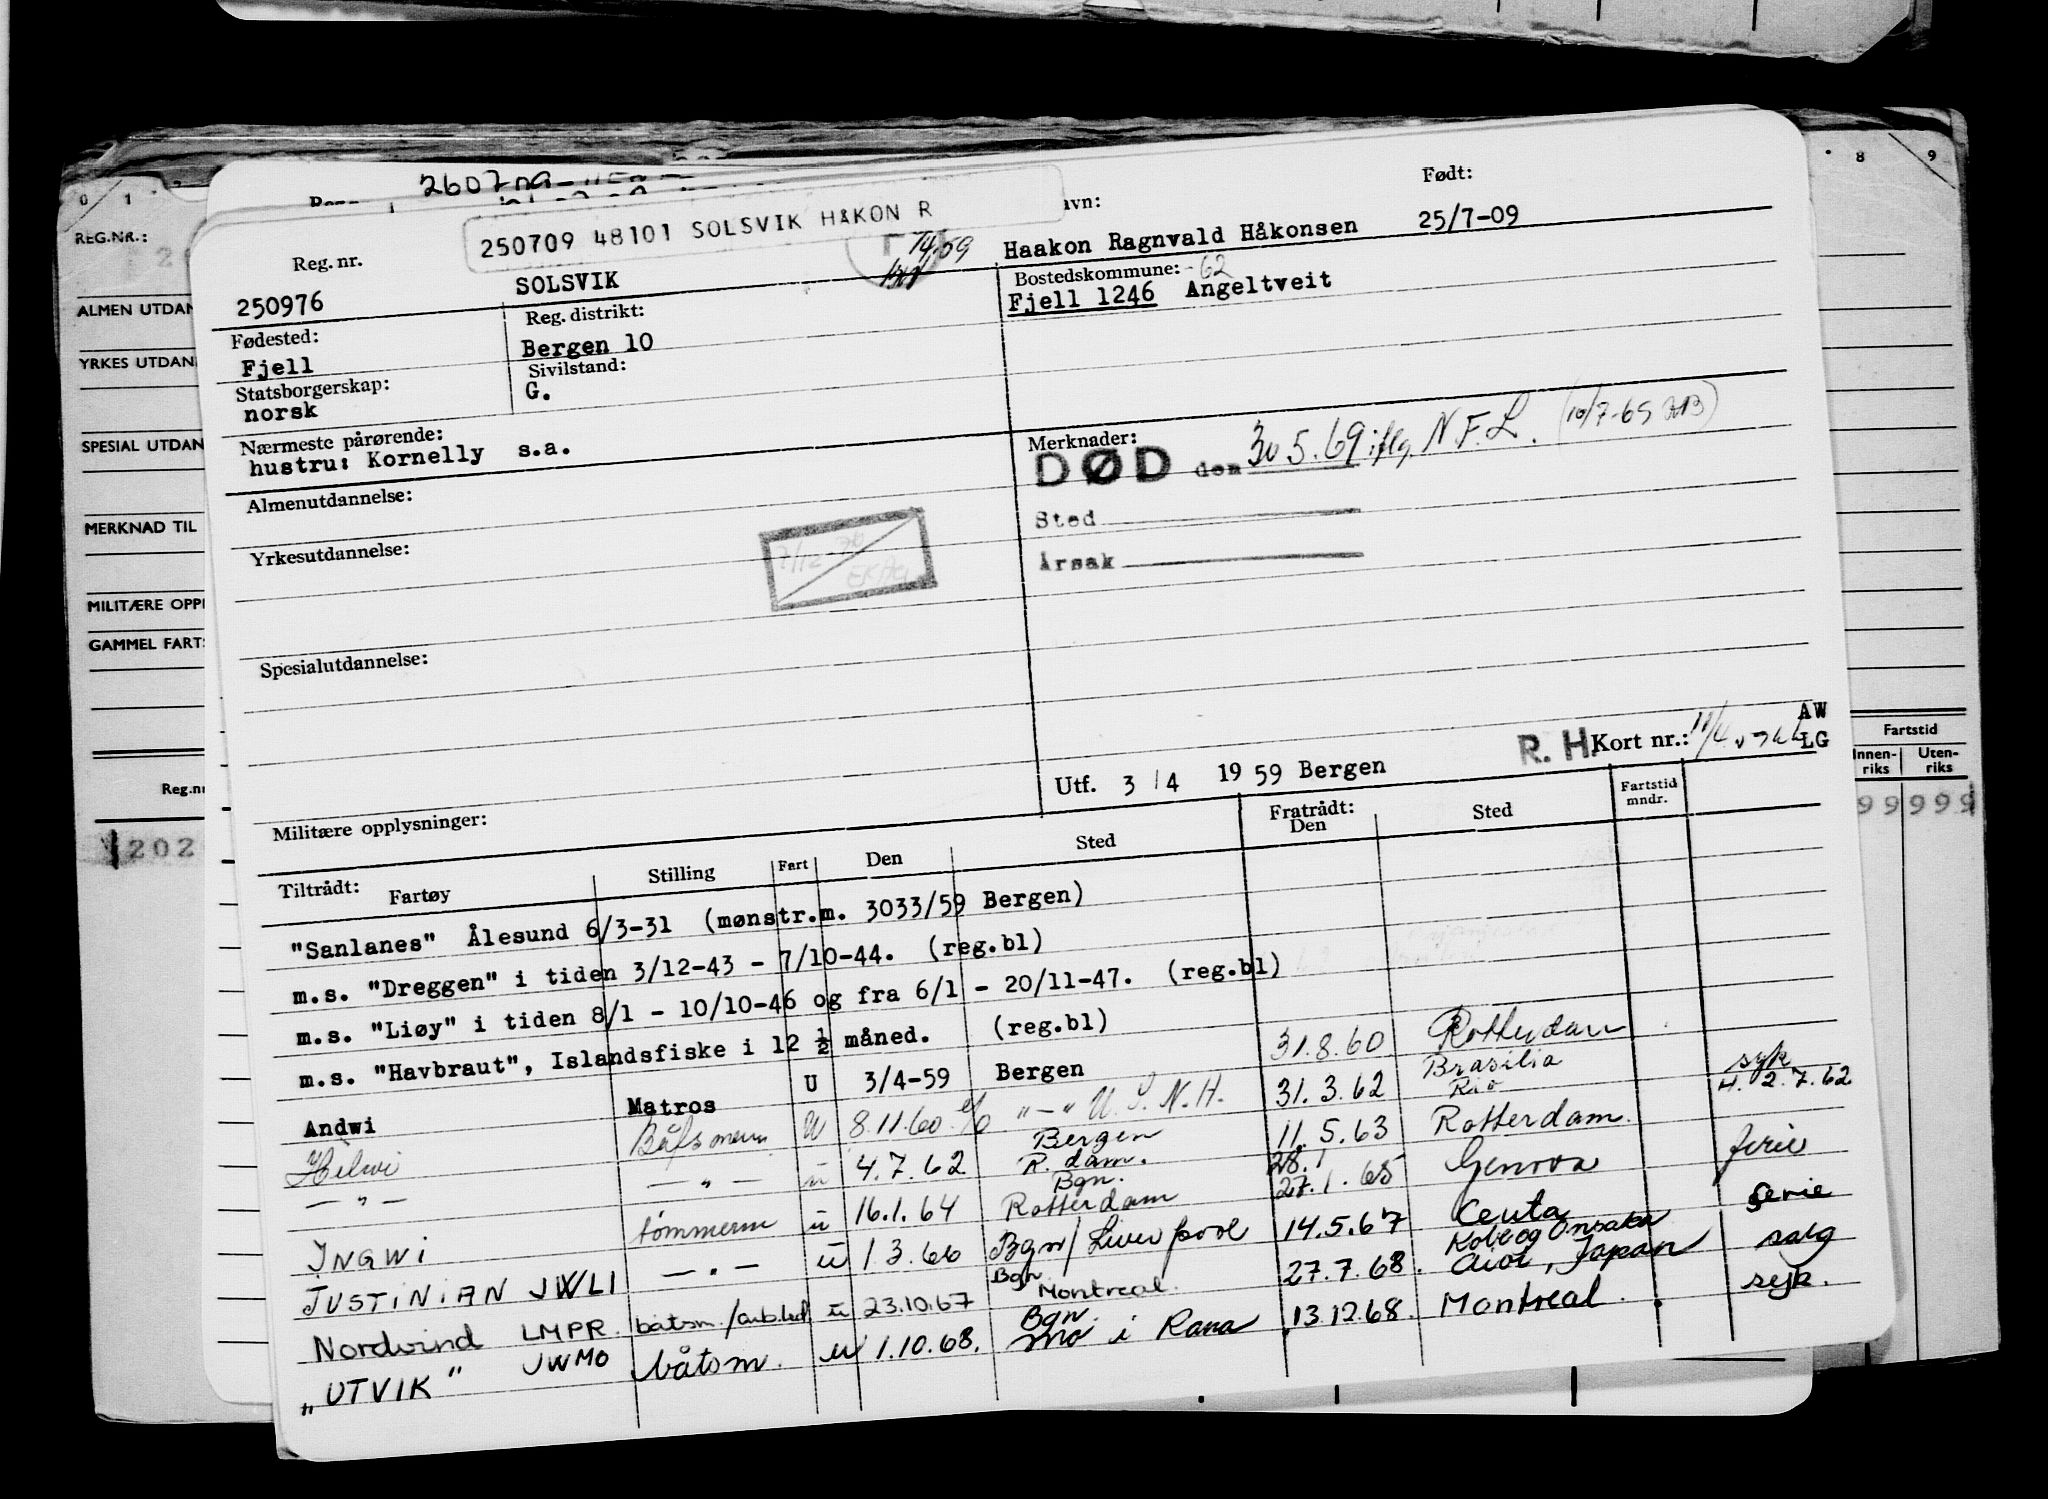 8 9
0 1
REG.NR.:
ALMEN UTDAN
YRKES UTDAN
SPESIAL UTDAN
MERKNAD TIL
MILITÆRE OPPL
GAMMEL FARTS
Reg.nr
202
Fartstid
Innen-riks Uten-riks
99 999
250709 48101 SOLSVIK HÅKON R
Reg. nr. avn: Født:
250976 SOLSVIK Haakon Ragnvald Håkonsen 25/7-09
Fødested: Reg. distrikt: Bostedskommune: -62
Fjell Bergen 10 Fjell 1246 Angeltveit
Statsborgerskap: Sivilstand:
norsk G.
Nærmeste pårørende: Merknader:
hustru: Kornelly s.a. DØD den 30 5.69 iflg. N.F.L. (10/7-69
Almenutdannelse: Sted
Yrkesutdannelse: Årsak
7/12-70
Spesialutdannelse:
R. H. Kort nr.: AW
LG
Utf. 3/4 1959 Bergen
Militære opplysninger:
Tiltrådt: Fartøy Stilling Fart Den Sted Fratrådt: Den Sted Fartstid mndr.
"Sanlanes" Ålesund 6/3-31 (mønstr.m. 3033/59 Bergen)
m.s. "Dreggen" i tiden 3/12-43 - 7/10-44. (reg.bl)
m.s. "Liøy" i tiden 8/1 - 10/10-46 og fra 6/1 - 20/11-47. (reg.bl)
m.s. "Havbraut", Islandsfiske i 12 ½ måned. (reg.bl)
Andwi Matros U 3/4-59 Bergen 31.8.60 Rotterdam
Hilwi Båtsmann U 8.11.60 "-" U.S.N.H. 31.3.62 Brasilia Rio syk
-"- -"- u 4.7.62 Bergen R.dam. 11.5.63 Rotterdam. H. 2.7.62
INGWI tømmerm u 16.1.64 Bgn. Rotterdam 28.1 27.1.65 Genova ferie
JUSTINIAN JWLI -"- u 1.3.66 Bgn/Liverpool 14.5.67 Ceuta ferie
Nordvind LMPR båtsm./arb.led u 23.10.67 Bgn. Montreal. 27.7.68. Kobe og Onsaka Aioi, Japan salg
"UTVIK" JWMO båtsm. u 1.10.68. Bgn. Mo i Rana 13.12.68. Montreal. syk.